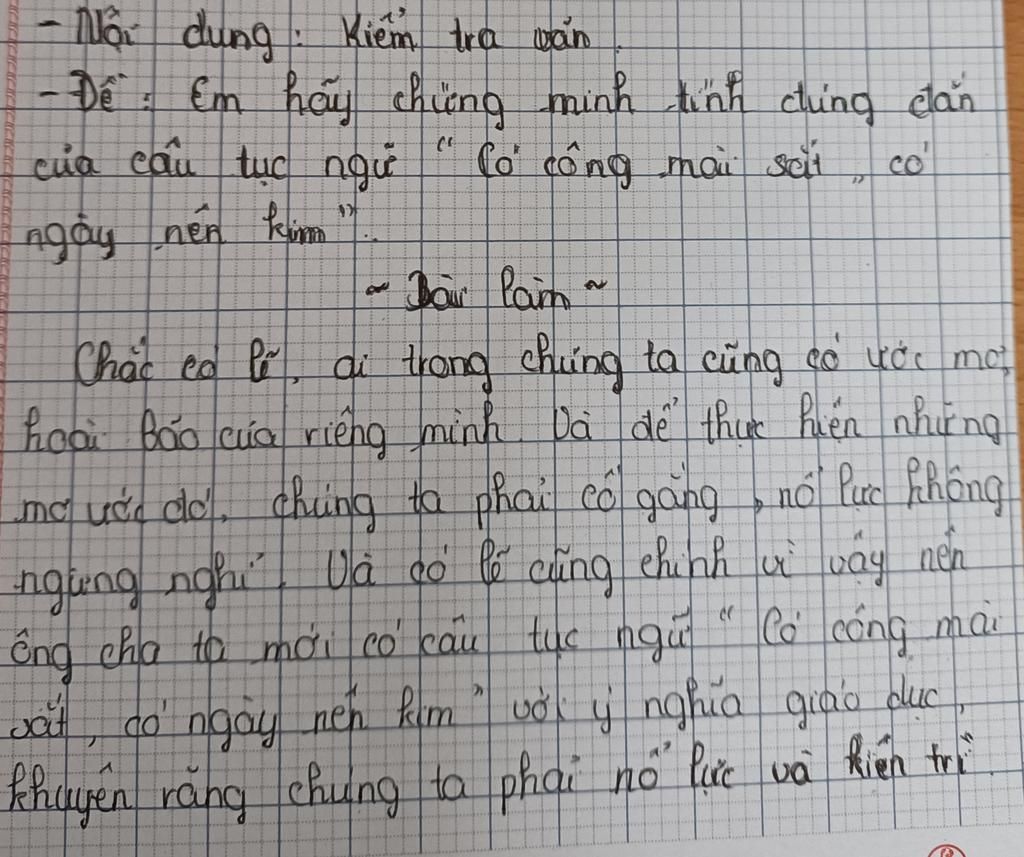 - Nội dung: Kiểm tra văn.
- Đề: Em hãy chứng minh tính đúng đắn
của câu tục ngữ "Có công mài sắt, có
ngày nên kim".
~ Bài làm ~
Chắc có lẽ, ai trong chúng ta cũng có ước mơ,
hoài bão của riêng mình. Và để thực hiện những
mơ ước đó, chúng ta phải cố gắng, nỗ lực không
ngừng nghỉ. Và có lẽ cũng chính vì vậy nên
ông cha ta mới có câu tục ngữ "Có công mài
sắt, có ngày nên kim" với ý nghĩa giáo dục,
khuyên rằng chúng ta phải nỗ lực và kiên trì